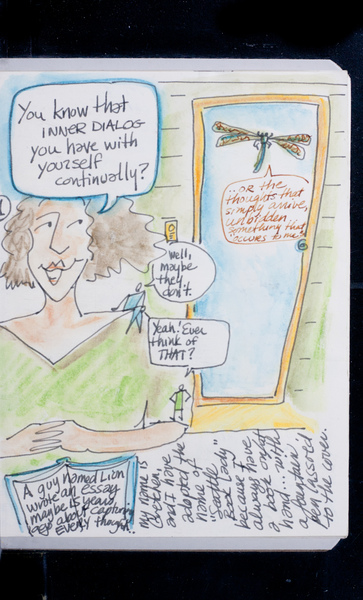 You know that
INNER DIALOG
you have with
yourself
continually?
...or the
thoughts that
simply arrive,
unbidden.
Something that
occurs to me
Well,
maybe
they
don't.
Yeah! Ever
think of
THAT?
A guy named Lion
wrote an essay
maybe 15 years
ago about capturing
EVERY thought.
my name is
Gretchen
and I have
adopted the
name of
"Seattle
Book Lady"
because I have
always a
book at
hand... with
a fountain
pen
to the cover.